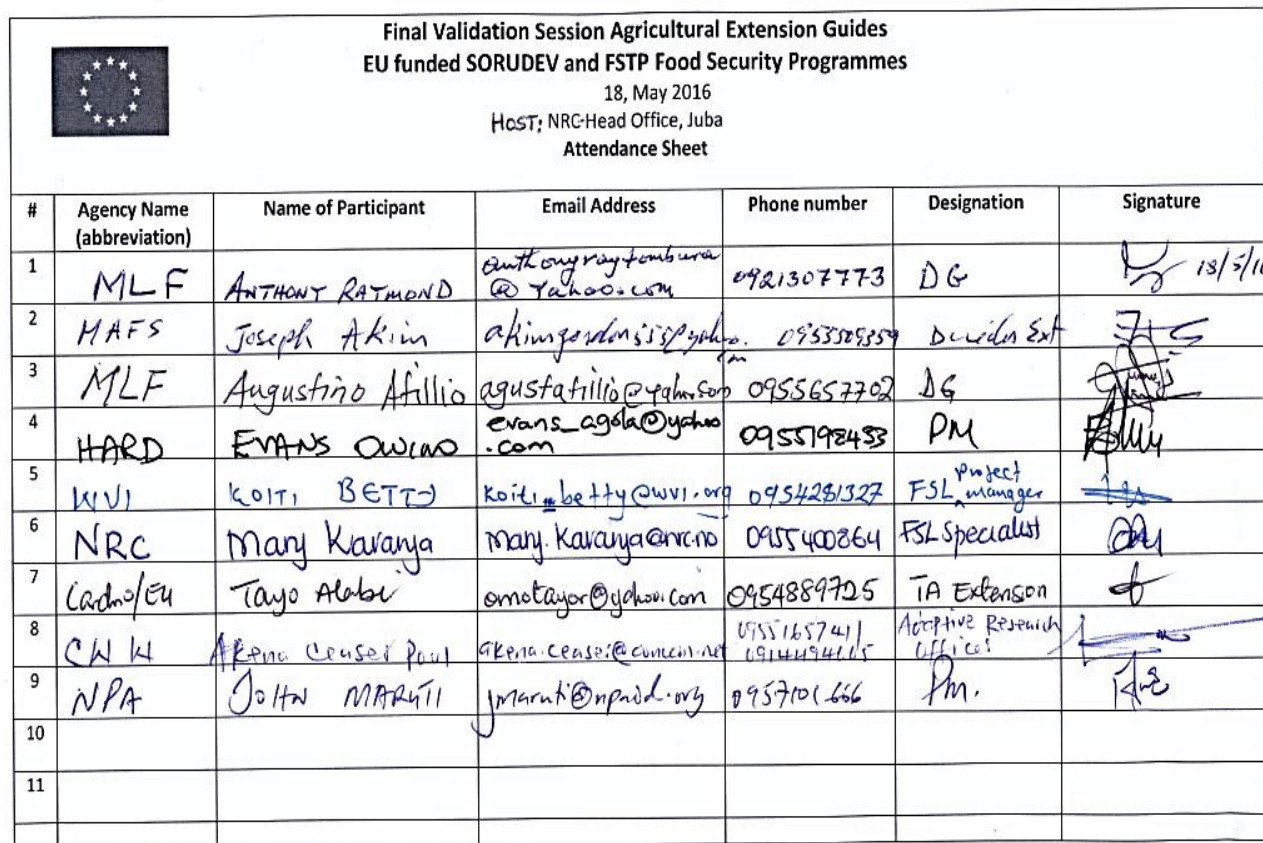 Final Validation Session Agricultural Extension Guides
EU funded SORUDEV and FSTP Food Security Programmes
18, May 2016
HOST: NRC-Head Office, Juba
Attendance Sheet
# Agency Name (abbreviation) Name of Participant Email Address Phone number Designation Signature
1 MLF ANTHONY RAYMOND anthonyraytombura@Yahoo.com 0921307773 DG 18/5/16
2 MAFS Joseph Akim Ext
3 MLF Augustino Atillio 0955657702 DG
4 HARD EVANS OWINO evans_agola@yahoo.com 0955198433 PM
5 WVI KOITI BETTY koiti_betty@wvi.org 0954281327 FSL project manager
6 NRC Mary Karanja mary.karanja@nrc.no 0955400864 FSL Specialist
7 Cardno/EU Tayo Alabi omotayor@yahoo.com 0954889725 TA Extension
8 CWW Akena Ceaser Paul Adaptive Research Officer
9 NPA JOHN MARUTI jmaruti@npaid.org 0957101666 PM.
10
11